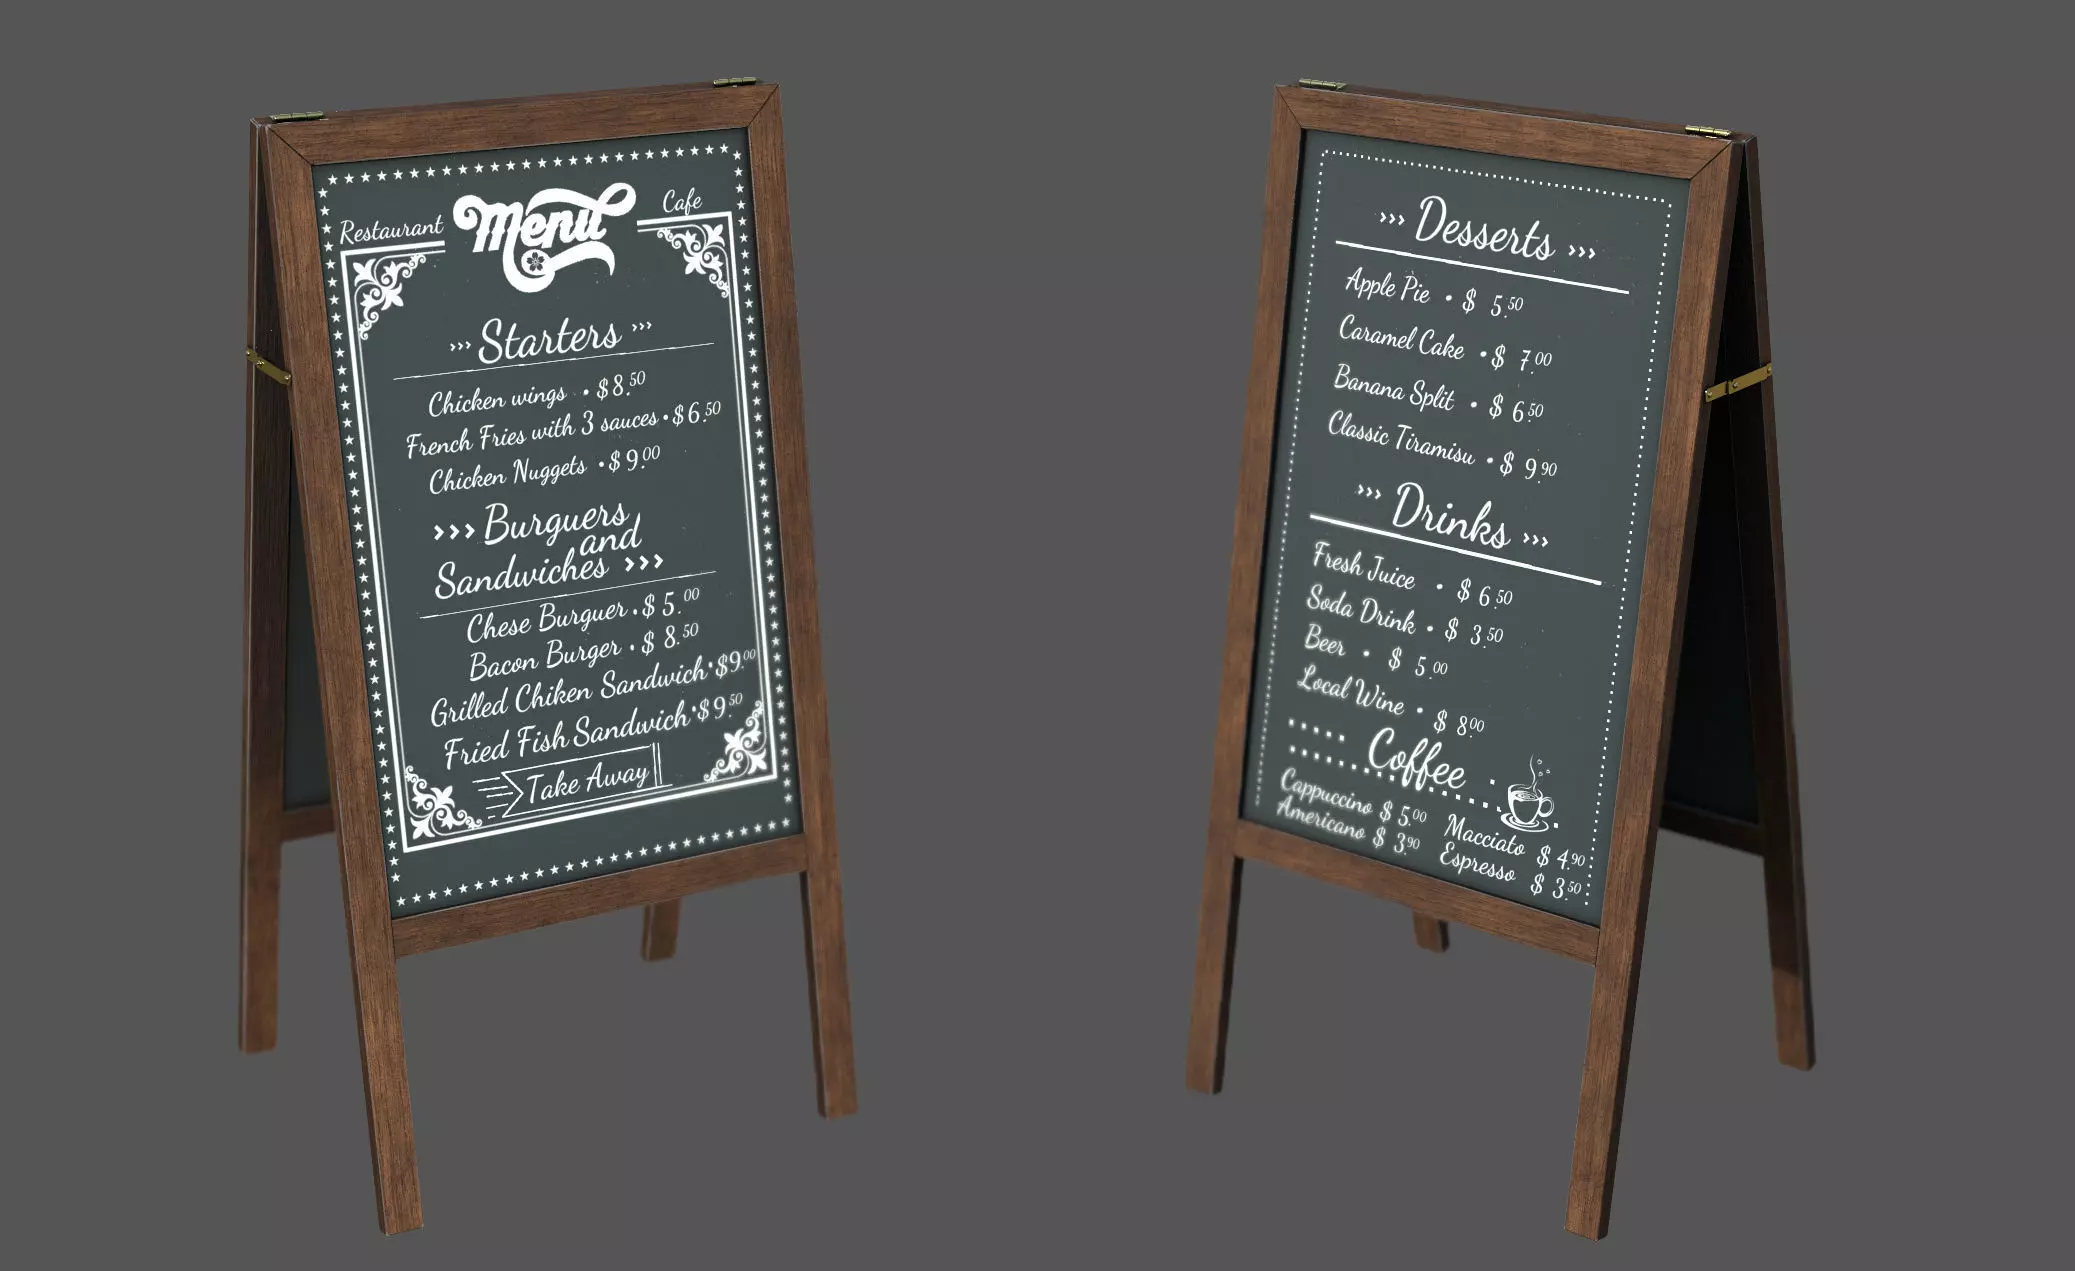 Restaurant Menu Cafe
››› Starters ›››
Chicken wings • $8.50
French Fries with 3 sauces • $6.50
Chicken Nuggets • $9.00
››› Burguers
and
Sandwiches ›››
Chese Burguer • $5.00
Bacon Burger • $8.50
Grilled Chiken Sandwich • $9.00
Fried Fish Sandwich • $9.50
Take Away
››› Desserts ›››
Apple Pie • $ 5.50
Caramel Cake • $ 7.00
Banana Split • $ 6.50
Classic Tiramisu • $ 9.90
››› Drinks ›››
Fresh Juice • $ 6.50
Soda Drink • $ 3.50
Beer • $ 5.00
Local Wine • $ 8.00
Coffee
Cappuccino $ 5.00 Macciato $ 4.90
Americano $ 3.90 Espresso $ 3.50